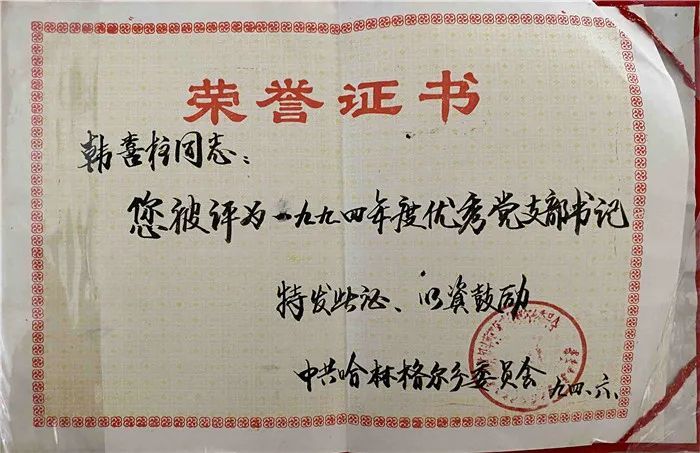 荣誉证书
韩喜柱同志：
您被评为一九九四年度优秀党支部书记
特发此证、以资鼓励
中共哈林格尔乡委员会
九四、六、